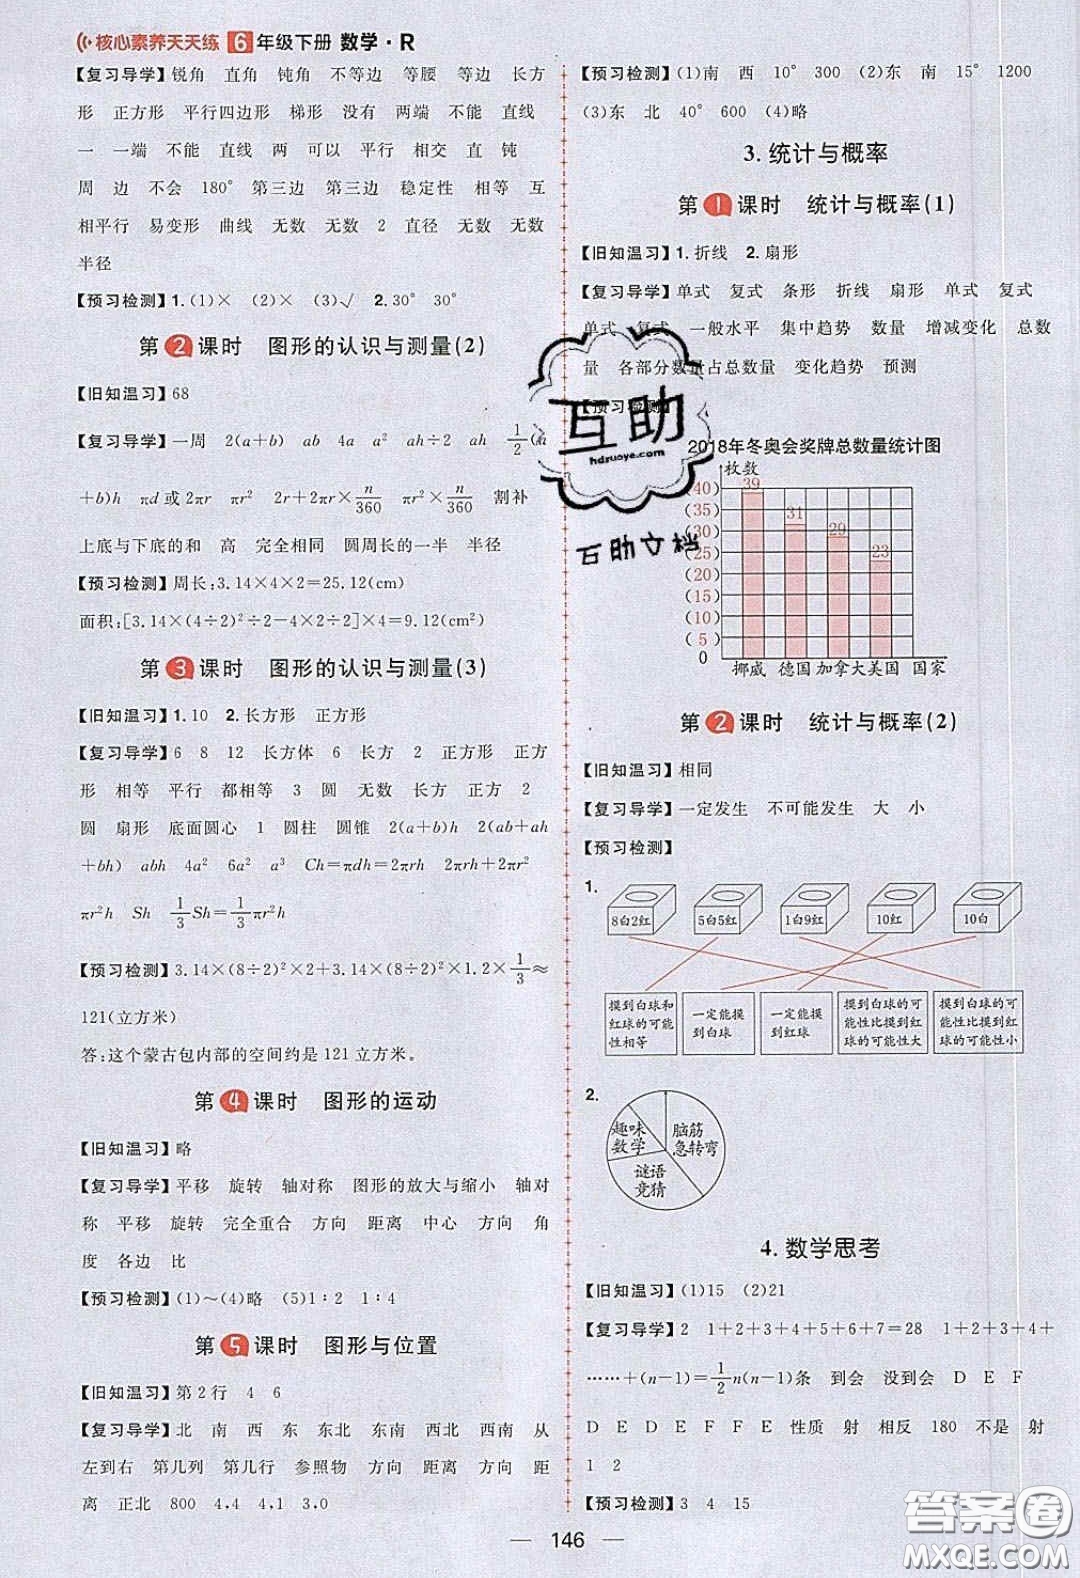 核心素养天天练 6 年级下册 数学·R
【复习导学】锐角 直角 钝角 不等边 等腰 等边 长方
形 正方形 平行四边形 梯形 没有 两端 不能 直线
一 一端 不能 直线 两 可以 平行 相交 直 钝
周 边 不会 180° 第三边 第三边 稳定性 相等 互
相平行 易变形 曲线 无数 无数 2 直径 无数 无数
半径
【预习检测】1.(1)× (2)× (3)√ 2.30° 30°
第2课时 图形的认识与测量(2)
【旧知温习】68
【复习导学】一周 2(a+b) ab 4a ah÷2 ah 1/2(a
+b)h πd或2πr πr² 2r+2πr×n/360 πr²×n/360 割补
上底与下底的和 高 完全相同 圆周长的一半 半径
【预习检测】周长:3.14×4×2=25.12(cm)
面积:[3.14×(4÷2)²÷2-4×2÷2]×4=9.12(cm²)
第3课时 图形的认识与测量(3)
【旧知温习】1.10 2.长方形 正方形
【复习导学】6 8 12 长方体 6 长方 2 正方形 正方
形 相等 平行 都相等 3 圆 无数 长方 正方 2
圆 扇形 底面圆心 1 圆柱 圆锥 2(a+b)h 2(ab+ah
+bh) abh 4a² 6a² a³ Ch=πdh=2πrh 2πrh+2πr²
πr²h Sh 1/3Sh=1/3πr²h
【预习检测】3.14×(8÷2)²×2+3.14×(8÷2)²×1.2×1/3≈
121(立方米)
答:这个蒙古包内部的空间约是121立方米。
第4课时 图形的运动
【旧知温习】略
【复习导学】平移 旋转 轴对称 图形的放大与缩小 轴对
称 平移 旋转 完全重合 方向 距离 中心 方向 角
度 各边 比
【预习检测】(1)～(4)略 (5)1∶2 1∶4
第5课时 图形与位置
【旧知温习】第2行 4 6
【复习导学】北 南 西 东 东北 东南 西北 西南 从
左到右 第几列 第几行 参照物 方向 距离 方向 距
离 正北 800 4.4 4.1 3.0
【预习检测】(1)南 西 10° 300 (2)东 南 15° 1200
(3)东 北 40° 600 (4)略
3.统计与概率
第1课时 统计与概率(1)
【旧知温习】1.折线 2.扇形
【复习导学】单式 复式 条形 折线 扇形 单式 复式
单式 复式 一般水平 集中趋势 数量 增减变化 总数
量 各部分数量占总数量 变化趋势 预测
【预习检测】
2018年冬奥会奖牌总数量统计图
枚数
(40)
(35)
(30)
(25)
(20)
(15)
(10)
(5)
0
39
31
29
23
挪威 德国 加拿大 美国 国家
第2课时 统计与概率(2)
【旧知温习】相同
【复习导学】一定发生 不可能发生 大 小
【预习检测】
1.
8白2红 5白5红 1白9红 10红 10白
摸到白球和红球的可能性相等
一定能摸到白球
一定能摸到红球
摸到白球的可能性比摸到红球的可能性大
摸到白球的可能性比摸到红球的可能性小
2.
趣味数学
脑筋急转弯
谜语竞猜
4.数学思考
【旧知温习】(1)15 (2)21
【复习导学】2 1+2+3+4+5+6+7=28 1+2+3+4+
……+(n-1)=1/2n(n-1)条 到会 没到会 D E F
D E D E F F E 性质 射 相反 180 不是 射
1 2
【预习检测】3 4 15
146
互助
hdzuoye.com
互助文档
答案圈
MXQE.COM